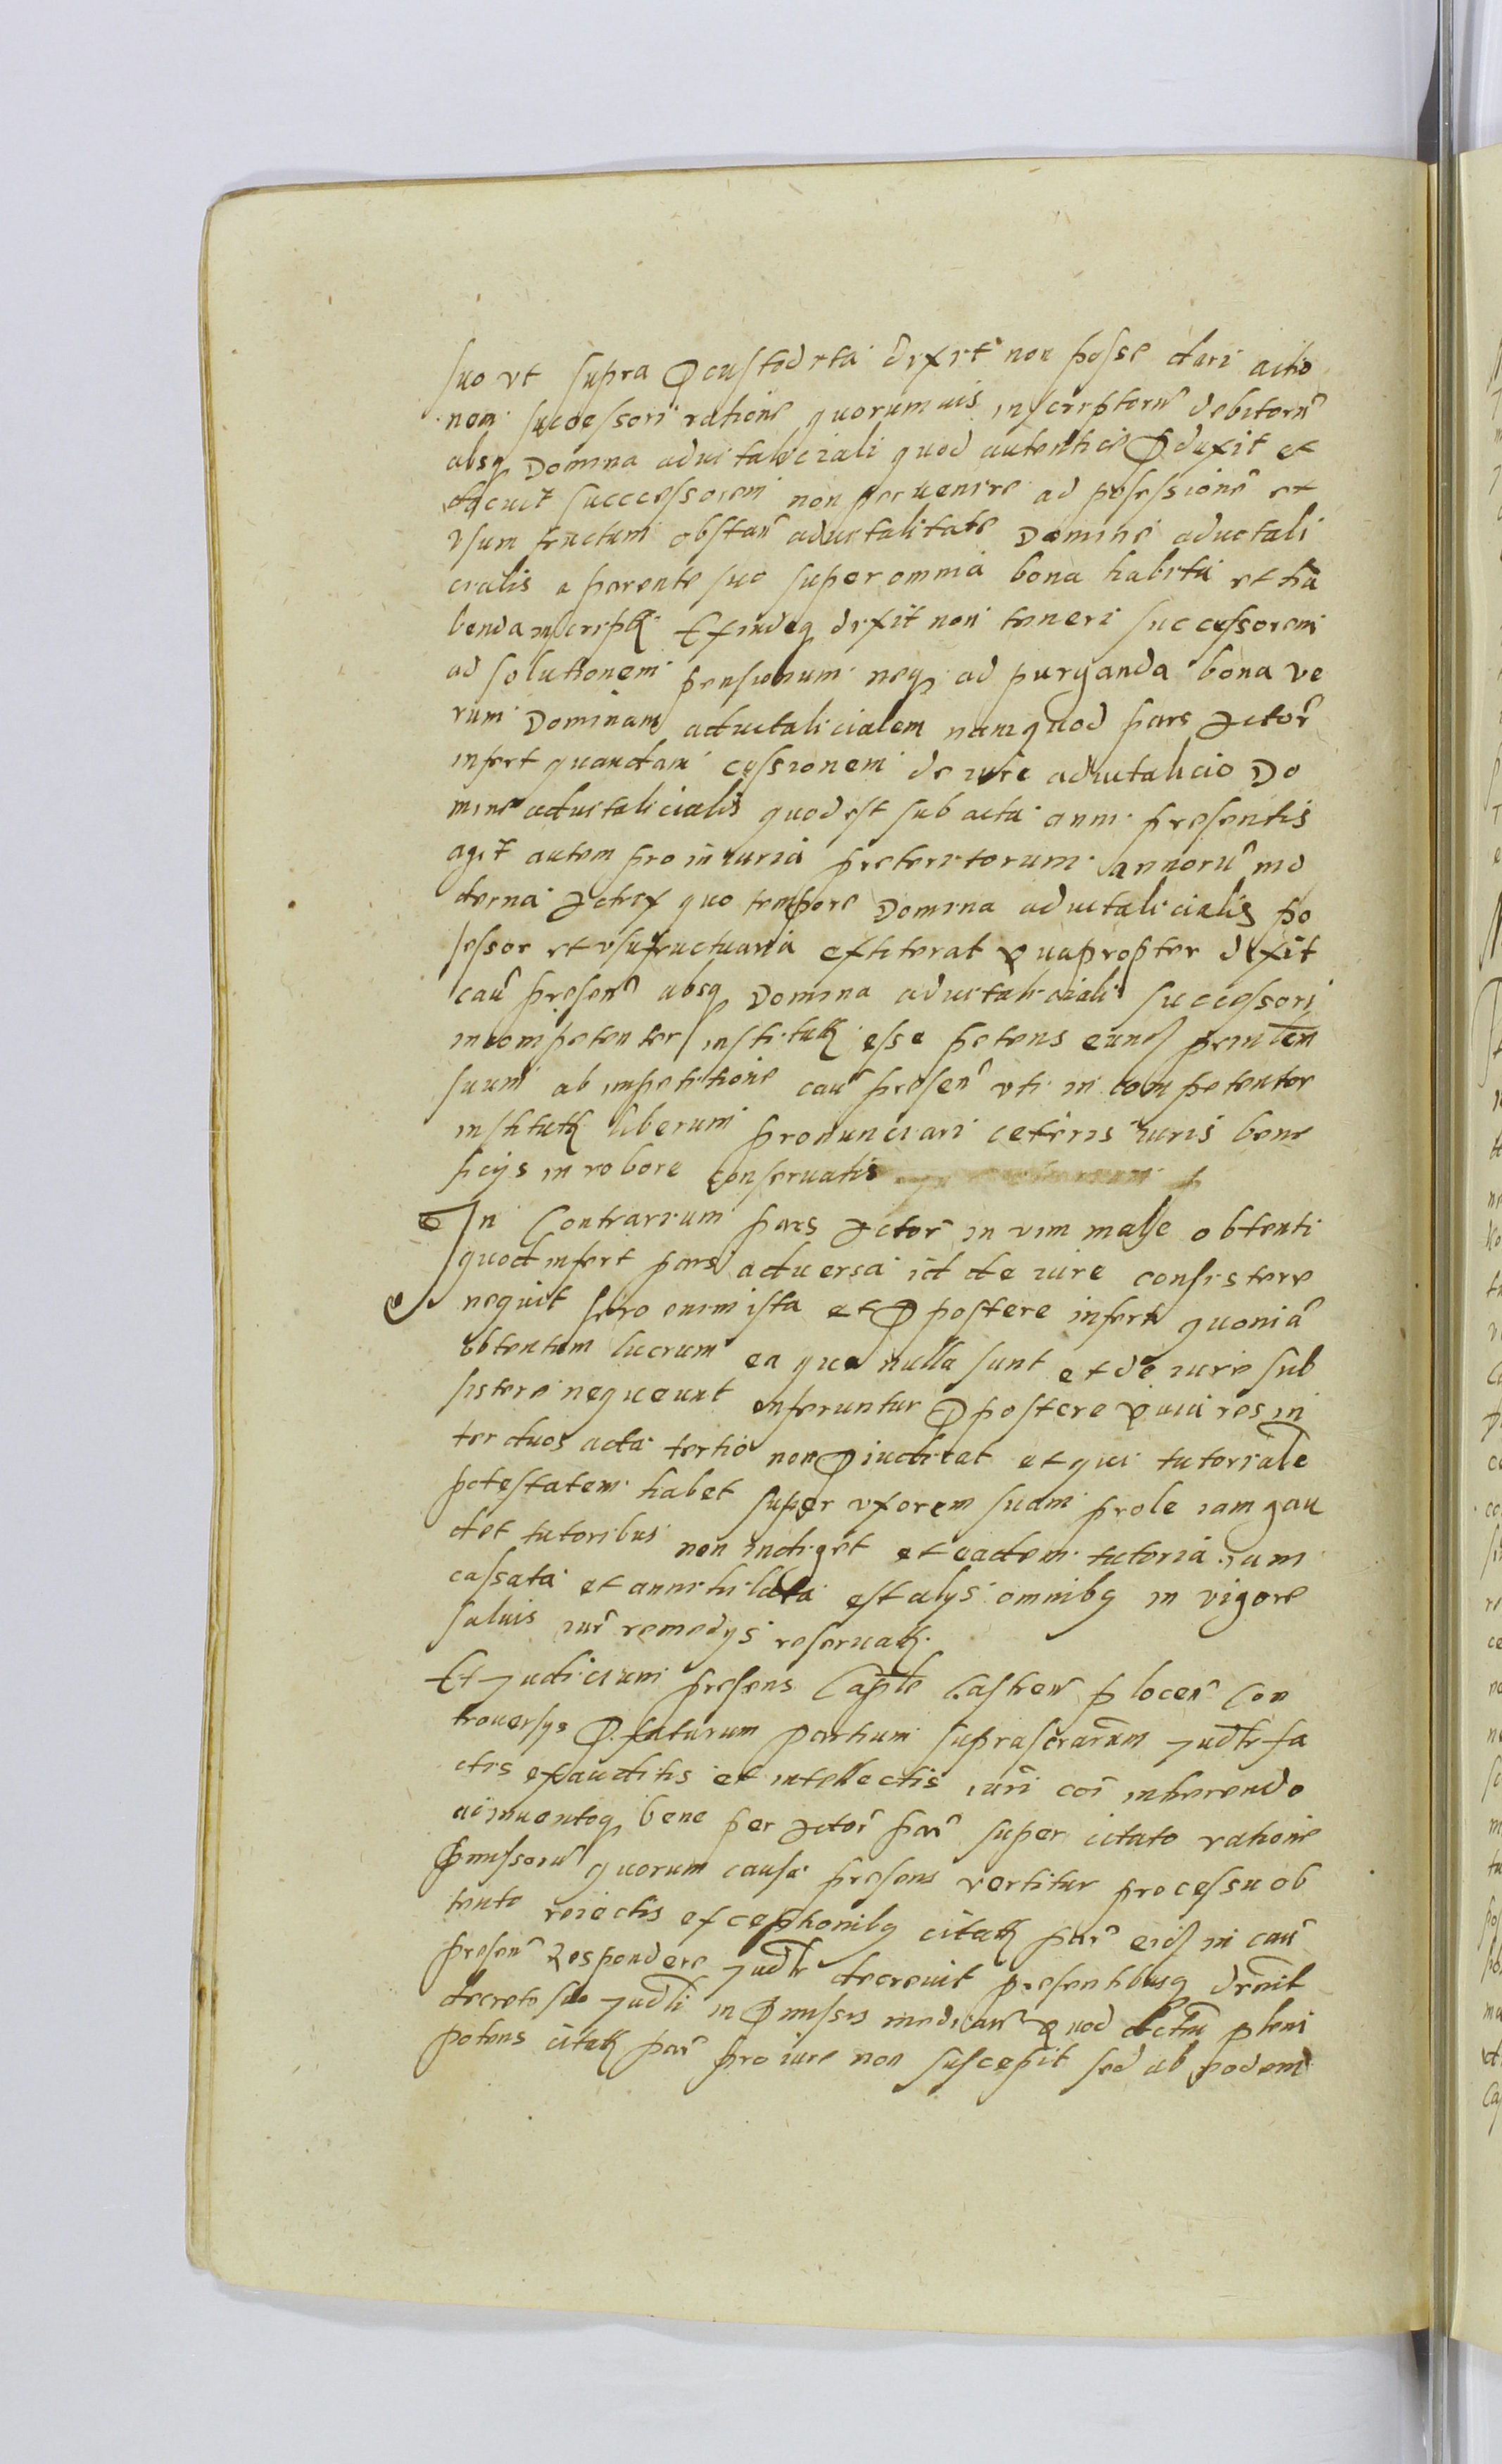 suo vt supra p̱custodita dixit non posse dari actio
nem successori ratione quorumuis inscriptorũ debitorũ
absq Domina aduitaliciali quod autentice p̱duxit et
docuit successorem non peruenire ad possessionẽ et
vsum fructum obstañ aduitalitate Domine aduitali
cialis a parente suo super omnia bona habita et ha
benda inscript̃ Exindeq dixit non teneri successorem
ad solutionem pensionum neq ad purganda bona ve
rum Dominam aduitalicialem nam quod pars Actor̃
infert quandam cessionem de iure aduitalicio Do
mine aduitalicialis quod est sub acta anni presentis
agit autem pro iniuria preteritorum annorũ mo
derna Actrix quo tempore Domina aduitalicialis po
sessor et vsufructuaria extiterat Quapropter dixit
cau͂ presen͂ absq Domina aduitaliciali successori
incompetenter institut̃ esse petens eund̃ prin͂lem
suum ab impetitione cau͂ presen͂ vti in competenter
institut̃ liberum pronunciari ceteris iuris bene
ficys in robore conseruatis
In Contrarium pars Actor̃ in vim male obtenti
quod infert pars aduersa id de iure consistere
nequit sero enim ista et p̱postere infert quoniã
obtentum lucrum ea que nulla sunt et de iure sub
sistere nequeunt inferuntur p̱postere Quia res in
ter duos acta tertio non p̱iudicat et qui tutorialẽ
potestatem habet super vxorem suam prole iam gau
det tutoribus non indiget et eadem tutoria iam
cassata et annihilata est alys omnibq in vigore
saluis iur̃ remedys reseruat̃.
Et Judicium presens Cap͂le Castren͂ p locen͂ Con
trouersys p̱fatarum partium suprascr̃arum Jud͂lr fa
ctis exauditis et intellectis iuri coi͂ inherendo
adinuentoq bene per Actor̃ par͂ super citato ratione
p̱missorũ quorum causa presens vertitur processu ob
tento reiectis exceptionibq citat̃ par͂ eid̃ in cau͂
presen͂ Respondere Jud͂lr decreuit presentibusq dr͂nit
decreto suo Jud͂li in p̱missis median͂ Quod dictũ pleni
potens citat̃ par͂ pro iure non suscepit sed ab eodem